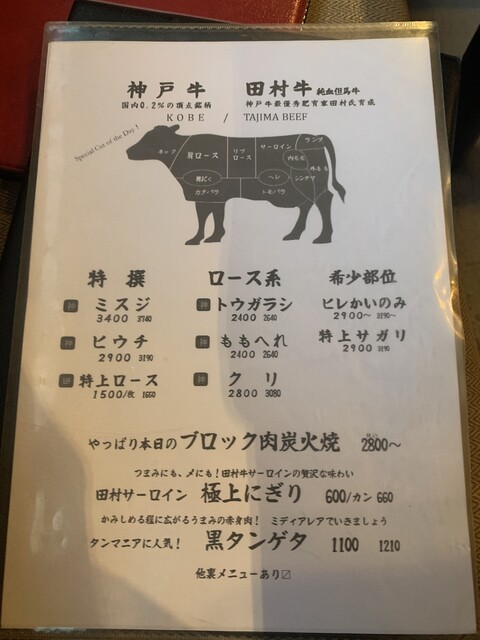 神戸牛 田村牛 純血但馬牛
国内0.2%の頂点銘柄 神戸牛最優秀肥育家田村氏育成
KOBE / TAJIMA BEEF
Special Cut of the Day !
ネック 肩ロース リブロース サーロイン ランプ
内もも 外もも
ヘレ シンタマ
カタバラ トモバラ
特撰 ロース系 希少部位
神 ミスジ 神 トウガラシ ヒレかいのみ
3400 3740 2400 2640 2900〜 3190〜
神 ヒウチ 神 ももへれ 特上サガリ
2900 3190 2400 2640 2900 3190
田 特上ロース 神 クリ
1500/枚 1650 2800 3080
やっぱり本日のブロック肉炭火焼 2800〜
つまみにも、〆にも!田村牛サーロインの贅沢な味わい
田村サーロイン 極上にぎり 600/カン 660
かみしめる程に広がるうまみの赤身肉! ミディアレアでいきましょう
タンマニアに人気! 黒タンゲタ 1100 1210
他裏メニューあり〼